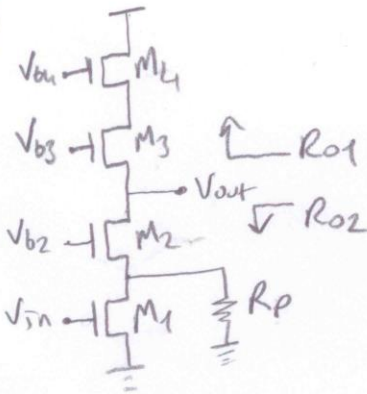 Vb4 M4
Vb3 M3
Ro1
Vout
Ro2
Vb2 M2
Rp
Vin M1